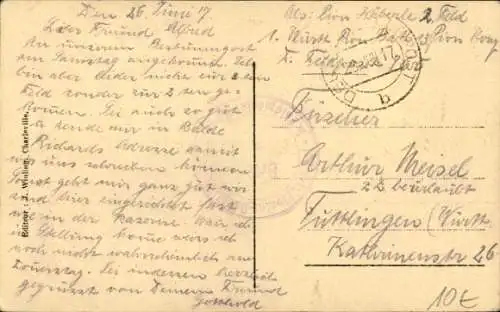 Den 26 Juni 17.
Lieber Freund Alfred
An unserem Bestimmungsort
am Samstag angekommen. Ich
bin aber leider nicht zur 2ten
Feld sonder zur 2ten ge-
kommen. Sei auch so gut
u sende mir in Balde
Richards Adresse damit
schreiben können
Sonst geht mir ganz gut wir
sind hier eingerichtet fast
wie in der Kazerne. Wan ich
in Stellung kome weis ich
noch nicht wahrscheinlich am
Donerstag. Sei indessen herzlich
gegrüsst von Deinem Freund
Gotthold
Editeur : J. Winling, Charleville.
Abs: Pion Häberle 2. Feld
1. Württ Pion Batl 13 Pion Komp
z. Feldpost
b
17.
Arthur Meisel
zz beurlaubt
Tuttlingen (Württ
Katharinenstr 26
10€